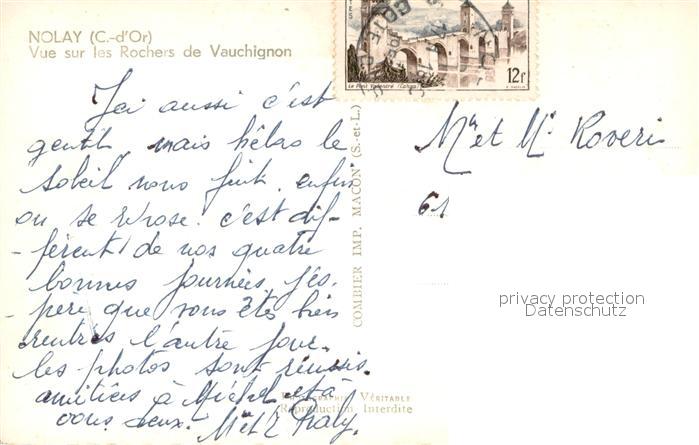 NOLAY (C.-d'Or)
Vue sur les Rochers de Vauchignon
Ici aussi c'est
gentil, mais hélas le
soleil nous fuit. enfin
on se repose. c'est dif-
-férent de nos quatre
bonnes journées. J'es-
-père que vous êtes bien
rentrés l'autre jour.
les photos sont réussis.
amitiés à Michel et à
vous deux.
COMBIER IMP. MACON (S.-et-L.)
Le Pont Valentré (Cahors)
12f
Mr et Me Roveri
61
privacy protection
Datenschutz
PHOTOGRAPHIE VÉRITABLE
(Reproduction Interdite